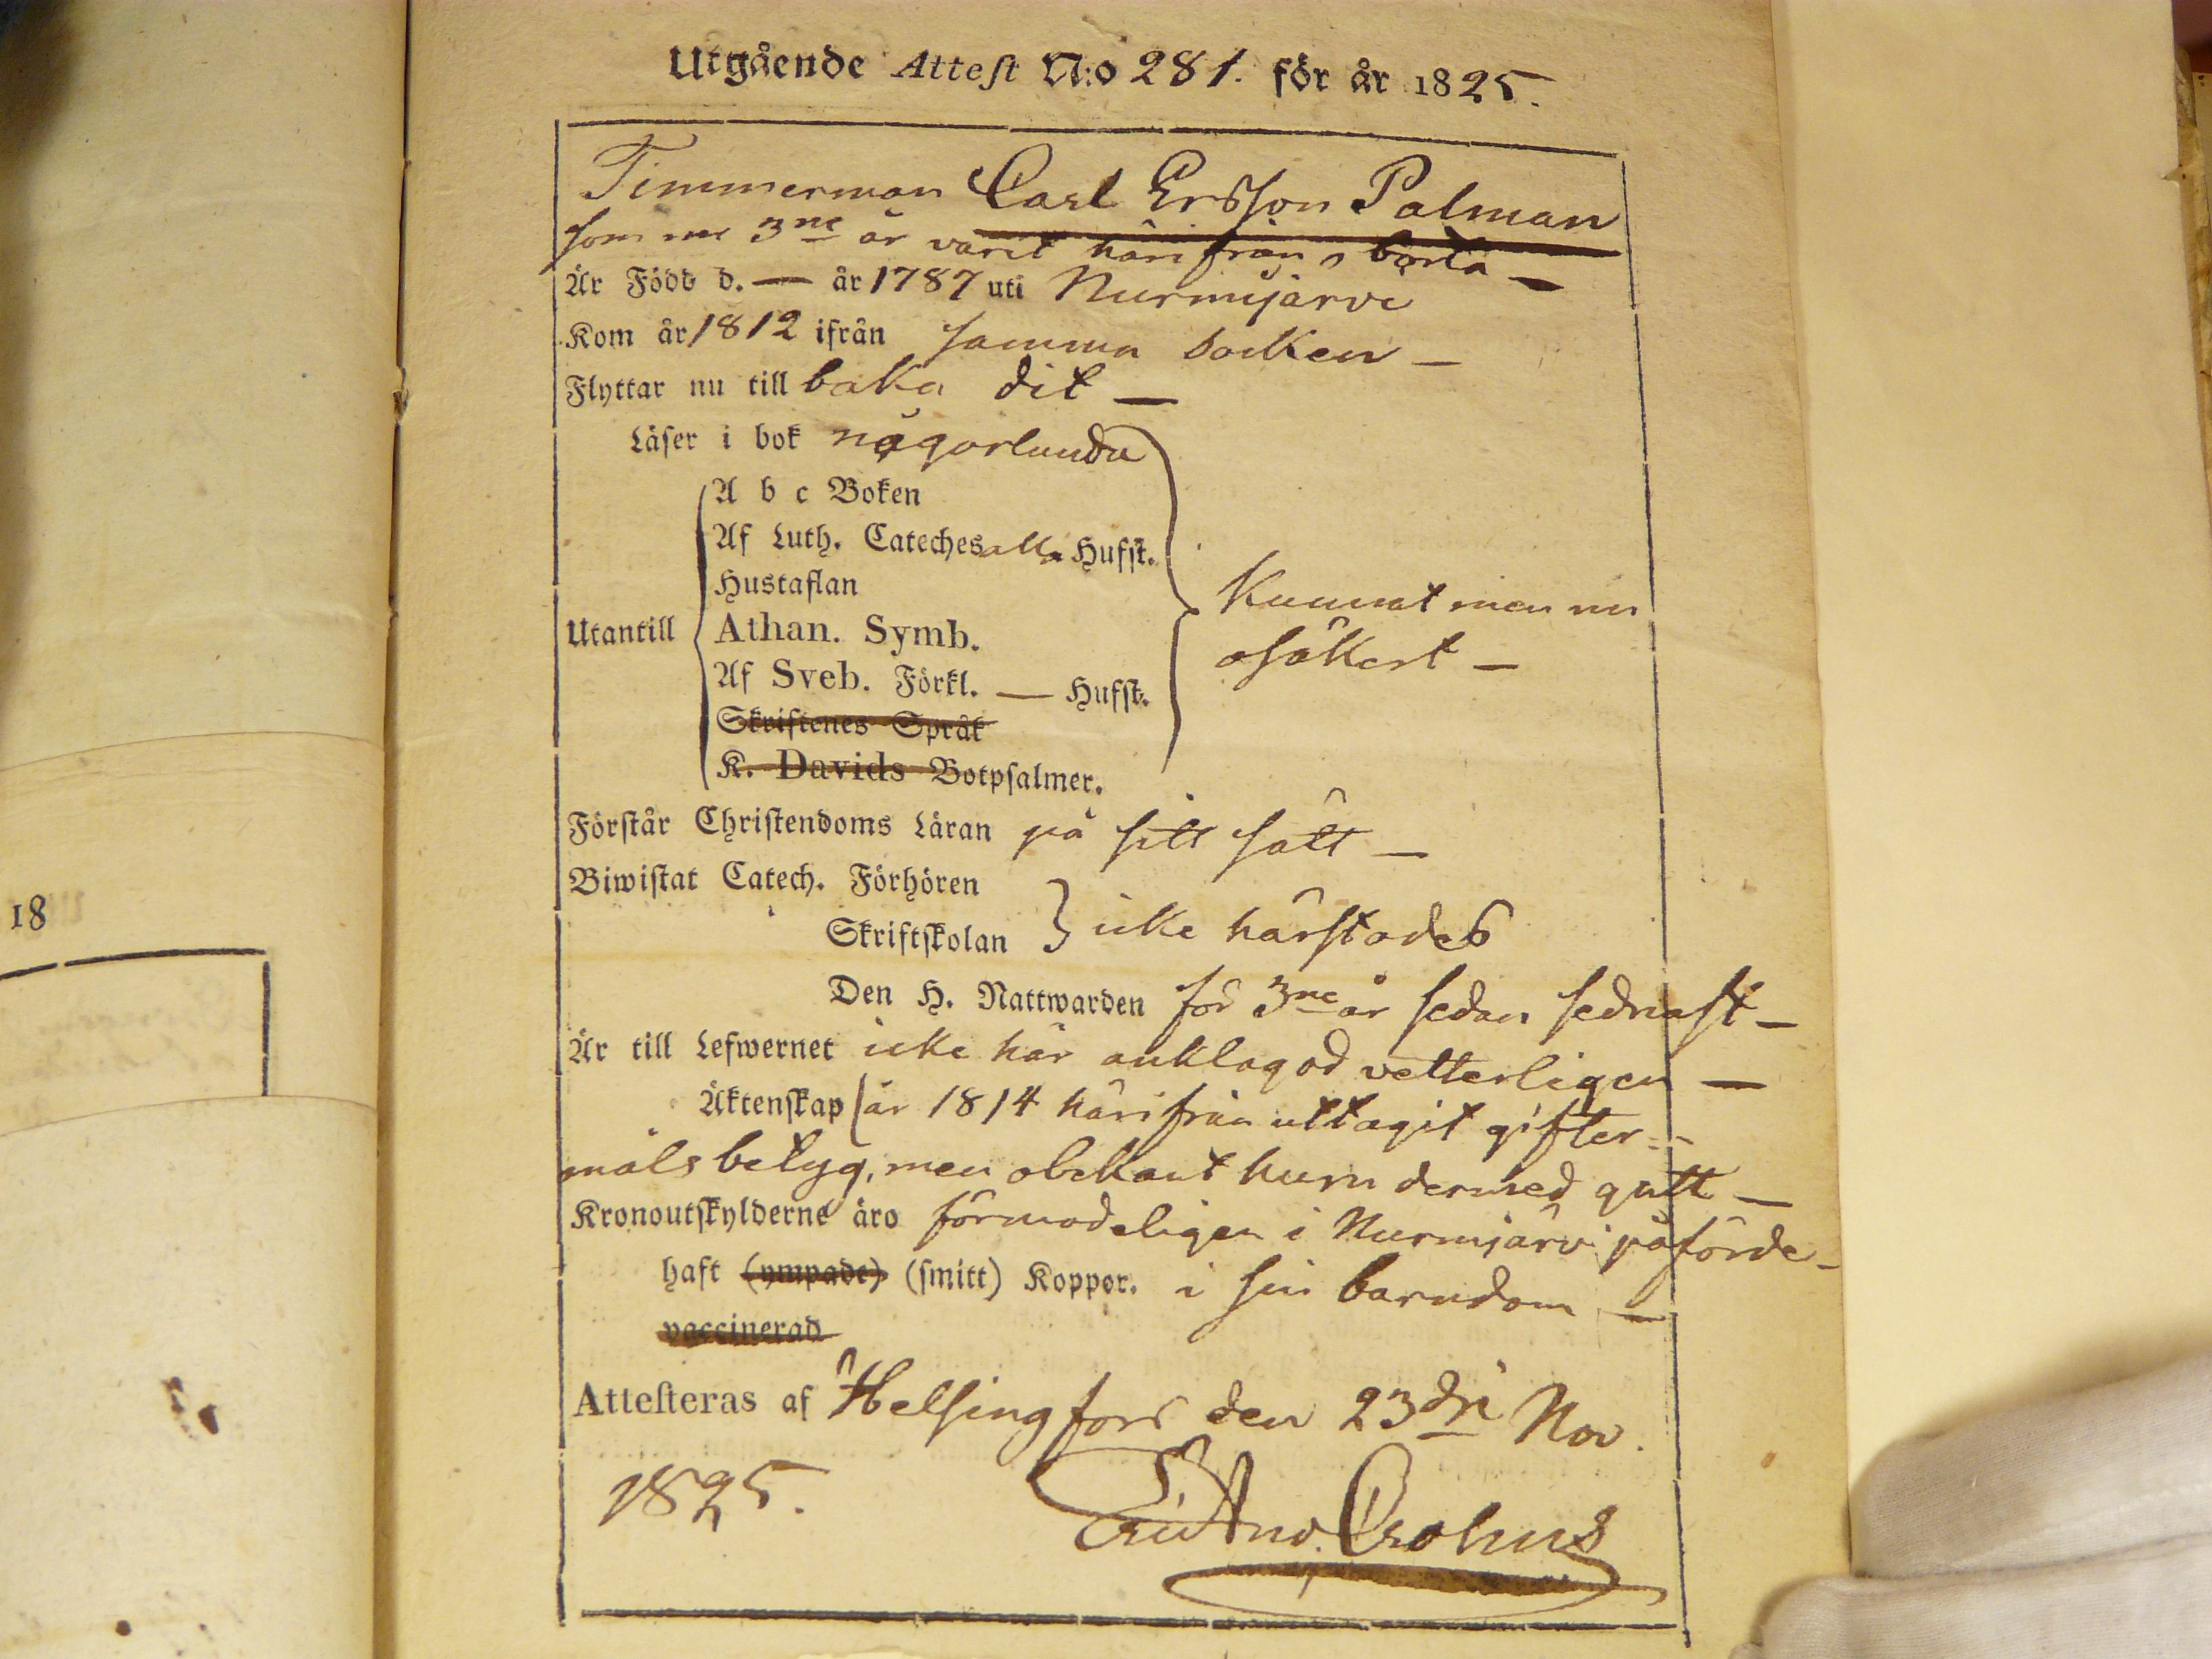 Utgående Attest N:o 281. för år 1825.
Timmerman Carl Ersson Palman
som nu 3ne år varit härifrån borta —
Är Född d. — år 1787 uti Nurmijärvi
Kom år 1812 ifrån samma socken —
Flyttar nu till baka dit —
Läser i bok någorlunda
A b c Boken
Af Luth. Cateches alla Hufst.
Hustaflan
Utantill Athan. Symb.
Kunnat men nu
osäkert —
Af Sveb. Förkl. — Hufst.
Skriftenes Språk
K. Davids Botpsalmer.
Förstår Christendoms Läran på sitt sätt —
Biwistat Catech. Förhören
Skriftskolan } icke härstädes
Den H. Nattwarden för 3ne år sedan sednast —
Är till Lefwernet icke här anklagad vetterligen —
Äktenskap (år 1814 härifrån uttagit gifter-
måls betyg, men obekant huru dermed gått —
Kronoutskylderne äro förmodeligen i Nurmijärvi påförde —
haft (ympade) (smitt) Koppor. i sin barndom —
vaccinerad
Attesteras af Helsingfors den 23dje Nov.
1825. Eric And. Crohns
18